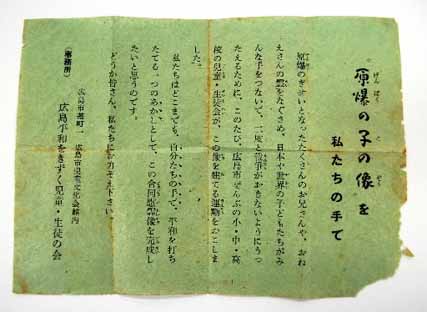 原爆の子の像を
私たちの手で
原爆のぎせいとなったたくさんのお兄さんや、おね
えさんの霊をなぐさめ、日本や世界の子どもたちがみ
んな手をつないで、二度と戦争がおきないようにうっ
たえるために、このたび、広島市ぜんぶの小・中・高
校の児童・生徒会が、この像を建てる運動をおこしま
した。
私たちはどこまでも、自分たちの手で、平和を打ち
たてる一つのあかしとして、この合同慰霊像を完成し
たいと思うのです。
どうか皆さん、私たちにお力ぞえ下さい。
(事務所)
広島市基町一 広島市児童文化会館内
広島平和をきずく児童・生徒の会